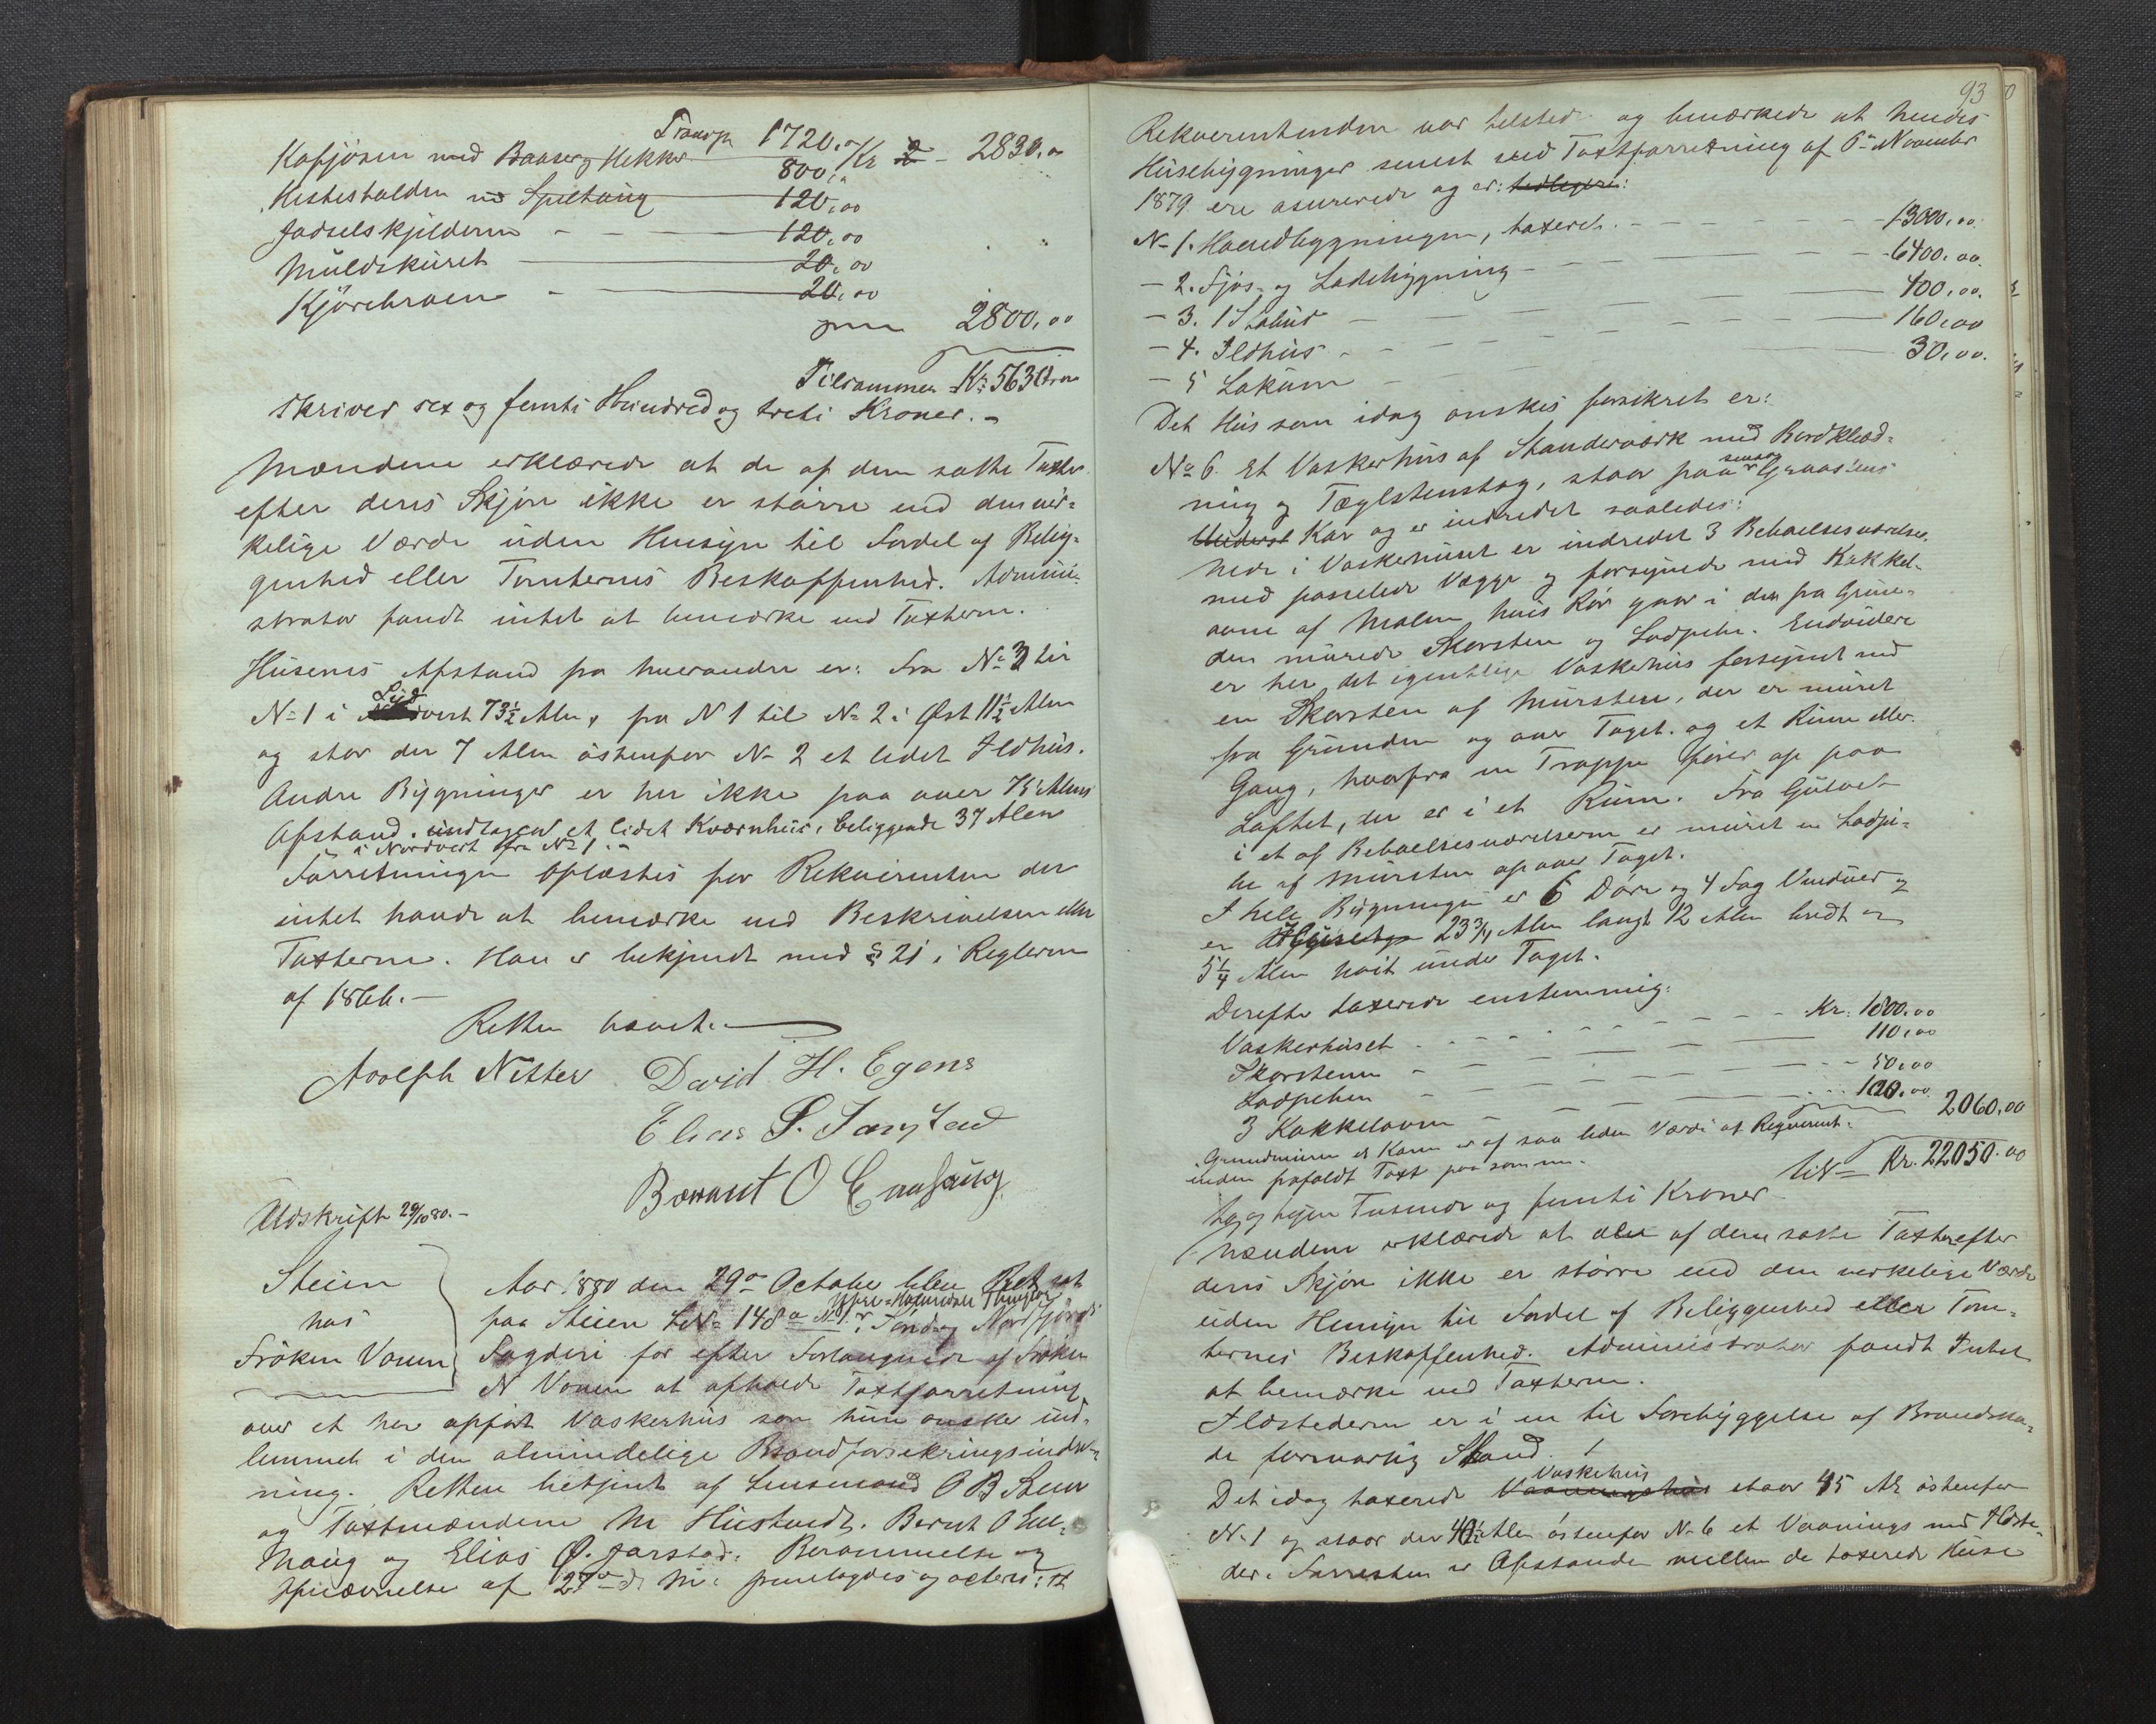 Transp 1720,00 Kr 2830,00
Kofjösen med Baaser og Hekker 800,00
Hestestalden m Spiltoug 120,00
Fodselskjelderen 120,00
Muldskuret 20,00
Kjörebroen 20,00
2800,00
Tilsammen Kr: 5630
skriver sex og femti Hundred og treti Kroner.
Mændene erklærede at de af dem satte Taxter
efter deres Skjön ikke er större end den vir-
kelige Værdi uden Hensyn til Fordel af Belig-
genhed eller Tomternes Beskaffenhed. Admini-
strator fandt intet at bemærke ved Taxterne.
Husenes Afstand fra hverandre er: Fra No 3 til
No 1 i Sydvest 73½ Alen, fra N 1 til No 2 i Öst 11½ Alen
og staar der 7 Alen östenfor No 2 et lidet Ildhus.
Andre Bygninger er her ikke paa over 75 Alens
Afstand. undtagen et lidet Kværnhus, beliggende 37 Alen
i Nordvest fra No 1.
Forretningen oplæstes for Rekvirenten der
intet havde at bemærke ved Beskrivelsen eller
Taxterne. Han er bekjendt med § 21 i Reglerne
af 1866.
Retten hævet.
Adolph Nitter David H. Egens
Elias Jarstad
Berent O
Udskrift 29/10 80.
Steien
hos
Fröken Vonen
Aar 1880 den 29de October blev Ret sat
paa Steien LNo 148 a No 1 i Sönd og Nordfjords
Fogderi for efter Forlangende af Fröken
N Vonen at afholde Taxtforretning
over et her opfört Vaskerhus som hun önsker ind-
lemmet i den almindelige Brandforsikringsindret-
ning. Retten betjent af Lensmand O B Steen
og Taxtmændene M Hustvedt. Bernt O
og Elias Ø. Jarstad. Berammelse og
Opnævnelse af 27de ds M: fremlagdes og acteres:
93
Rekvirentinden var tilstede og bemærkede at hendes
Husebygninger senest ved Taxtforretning af 6te November
1879 ere assurerede og er:
No 1. Hovedbygningen, taxeret 13000,00
- 2. Fjös- og Ladebygning 6400,00
- 3. 1 Stabur 400,00
- 4. Ildhus 160,00
- 5 Lokum 30,00
Det Hus som idag önskes forsikret er:
No 6. Et Vaskerhus af Standerværk med Bordklæd-
ning og Tæglstenstag, staar paa Graastens
Kar og er indredet saaledes:
Nede i Vaskerhuset er indredet 3 Beboelsesværelser
med panelede Vægge og forsynede med Kakkel-
ovne af Malm hvis Rör gaar i den fra Grun-
den murede Skorsten og Lodpibe. Endvidere
er her det egentlige Vaskehus forsynet med
en Skorsten af Mursten, der er muret
fra Grunden og over Taget. og et Rum eller
Gang, hvorfra en Trappe förer op paa
Loftet, der er i et Rum. Fra Gulvet
i et af Beboelsesværelserne er muret en Lodpi-
be af Mursten op over Taget.
I hele Bygningen er 6 Döre og 4 Fag Vinduer og
er 23¾ Alen langt 12 Alen bredt og
5¼ Alen höit under Taget.
Derefter taxerede enstemmig:
Vaskerhuset Kr. 1800,00
Skorstenen 110,00
Lodpiben 50,00
3 Kakkelovne 100,00 2060,00
Grundmuren er Karm er af saa liden Værdi at Reqvirent.
inden frafaldt Taxt paa samme.
tils Kr. 22050,00
to og tyve Tusinde og femti Kroner
Mændene erklærede at de af dem satte Taxter efter
deres Skjön ikke er större end den verkelige Værdi
uden Hensyn til Fordel af Beliggenhed eller Tom-
ternes Beskaffenhed. Administrator fandt Intet
at bemærke ved Taxterne.
Ildstederne er i en til Forebyggelse af Brandska-
de forsvarlig Stand.
Det idag taxerede Vaskehus staar 45 Al östenfor
No 1 og staar der 40½ Alen östenfor No 6 et Vaanings med Ildste-
der. Forresten er Afstanden mellem de taxerede Huse